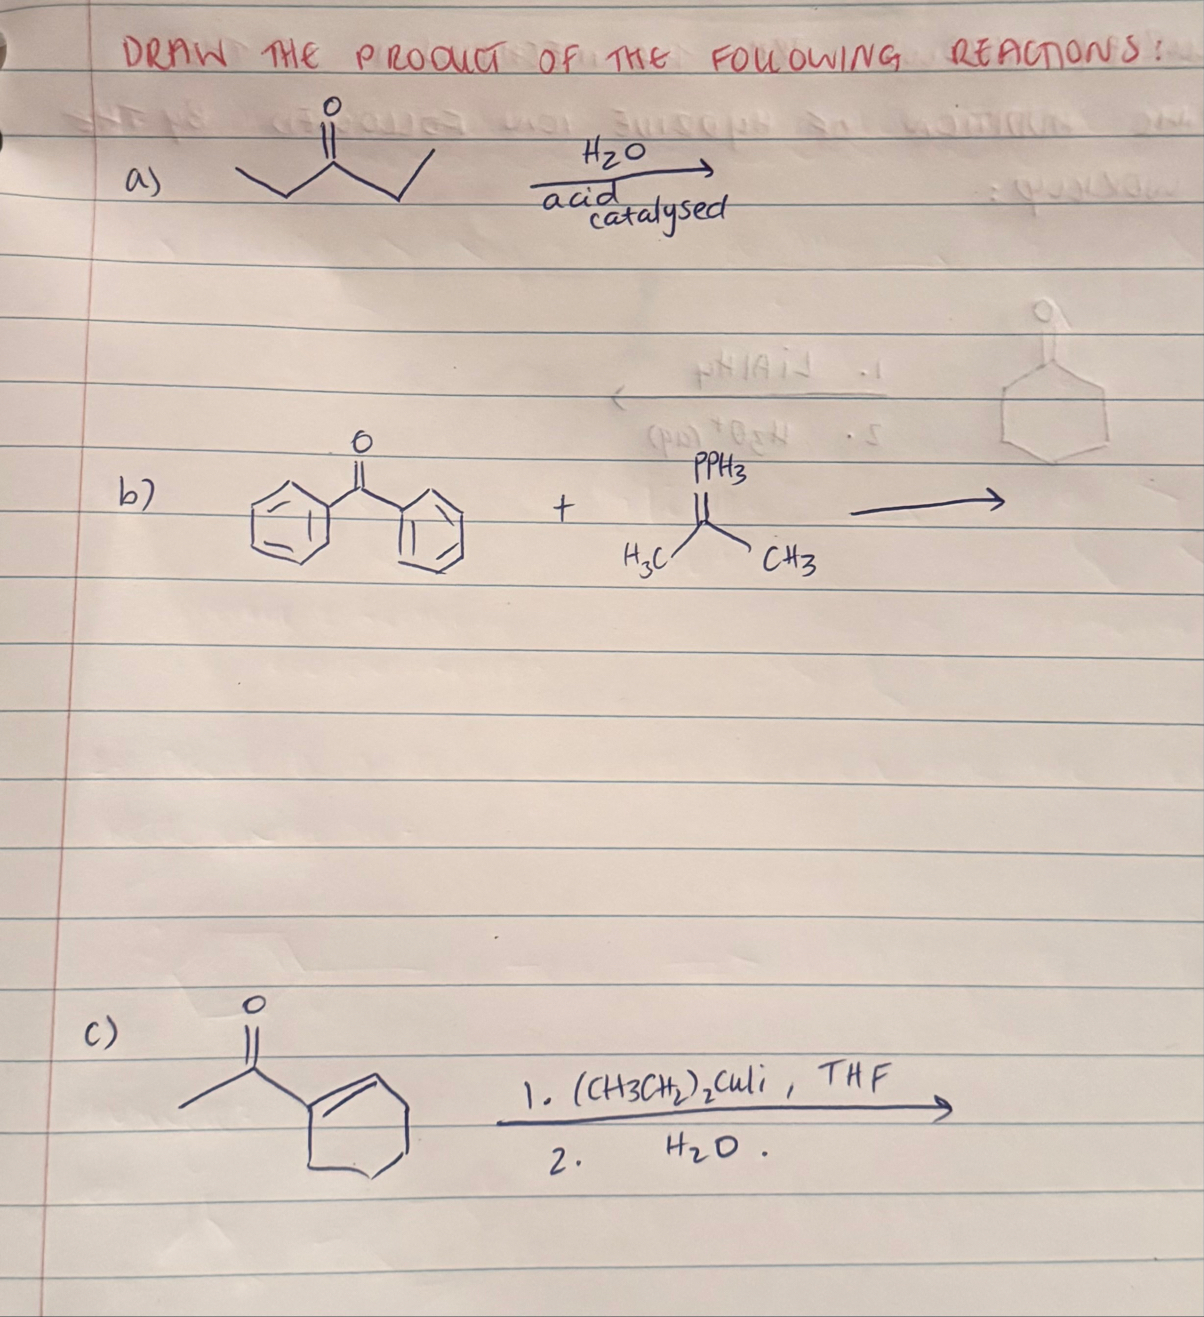 DRAW THE PRODUCT OF THE FOLLOWING REACTIONS:
a)
O
H₂O
acid
catalysed
b)
O
+
PPH₃
H₃C
CH₃
1. LiAlH₄
2. H₃O⁺ (aq)
O
c)
O
1. (CH3CH₂)₂CuLi, THF
2. H₂O.